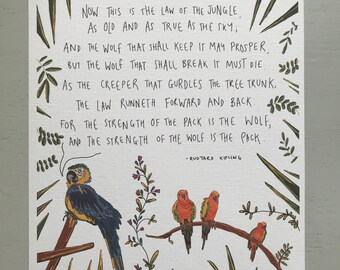 NOW THIS IS THE LAW OF THE JUNGLE,
AS OLD AND AS TRUE AS THE SKY;
AND THE WOLF THAT SHALL KEEP IT MAY PROSPER,
BUT THE WOLF THAT SHALL BREAK IT MUST DIE.
AS THE CREEPER THAT GURDLES THE TREE TRUNK,
THE LAW RUNNETH FORWARD AND BACK
FOR THE STRENGTH OF THE PACK IS THE WOLF,
AND THE STRENGTH OF THE WOLF IS THE PACK.
-RUDYARD KIPLING